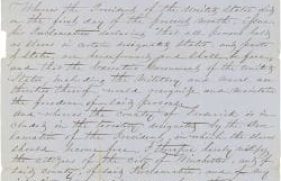 Whereas the President of the United States did
on the first day of the present month, issue
his Proclamation declaring that all persons held
as slaves in certain designated States, and parts
of States, are henceforth and shall be free
and that the Executive Government of the United
States, including the Military and Naval au-
thorities thereof would recognize and maintain
the freedom of said persons
and whereas the county of Frederick is in-
cluded in the territory designated by the Proc-
lamation of the President, in which the slaves
should become free, I therefore hereby notify
the citizens of the City of Winchester, and of
said County, of said Proclamation and of my